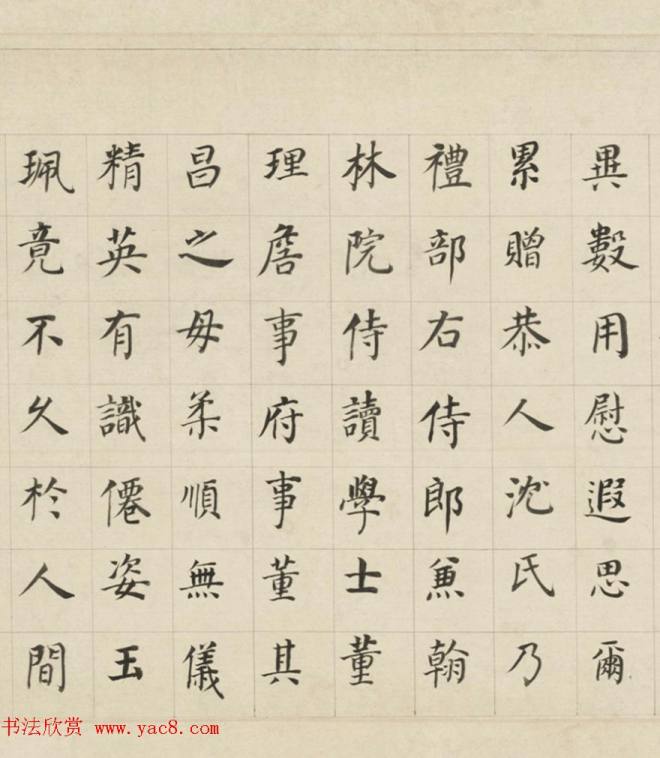 異數用慰遐思爾
累贈恭人沈氏乃
禮部右侍郎兼翰
林院侍讀學士董
理詹事府事董其
昌之母柔順無儀
精英有識僊姿玉
珮竟不久於人間
书法欣赏 www.yac8.com